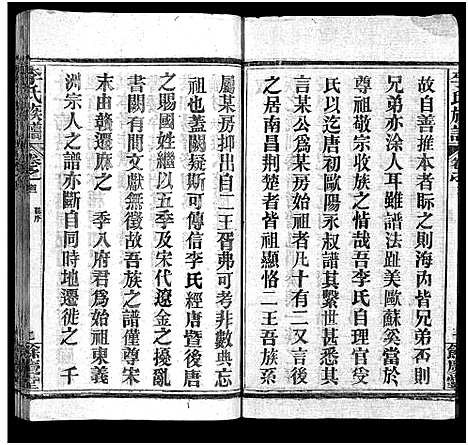 李氏族譜 卷之
故自善推本之際之則海內皆兄弟否則
兄弟亦涂人耳雖譜法趾美歐蘇奚當於
尊祖敬宗收族之恉哉吾李氏自理官受
氏以訖唐初歐陽永叔譜其繫世甚悉其
言某公為某房始祖者凡十有二又後言
之居南昌荆楚者皆祖顯恪二王吾族故
餘慶堂
李氏族譜 卷之首 舊序
屬某房抑出自二王胥弗可考非數典忘
祖也蓋闕疑斯可傳信李氏經唐暨後唐
之賜國姓繼以五季及宋代遼金之擾亂
書闕有間文獻無徵故吾族之譜僅尊宋
末由贛遷庶之 季八府君為始祖東義
洲宗人之譜亦斷自同時地遷徙之 千
餘慶堂